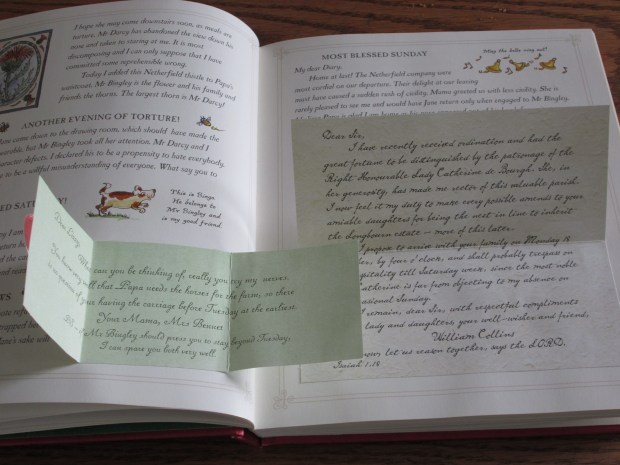 I hope she may come downstairs soon, as meals are
torture. Mr Darcy has abandoned the view down his
nose and takes to staring at me. It is most
discomposing and I can only suppose that I have
committed some reprehensible wrong.
Today I added this Netherfield thistle to Papa's
Mr Bingley is the flower and his family and
friends the thorns. The largest thorn is Mr Darcy!
ANOTHER EVENING OF TORTURE!
came down to the drawing room, which should have made the
but Mr Bingley took all her attention. Mr Darcy and I
character defects. I declared his to be a propensity to hate everybody,
to be a wilful misunderstanding of everyone. What say you to
This is Bingo.
He belongs to
Mr Bingley and
is my good friend.
Dear Lizzy,
What can you be thinking of, really you try my nerves.
You know very well that Papa needs the horses for the farm, so there
is no question of you having the carriage before Tuesday at the earliest.
Your Mama, Mrs Bennet
P.S. If Mr Bingley should press you to stay beyond Tuesday,
I can spare you both very well.
MOST BLESSED SUNDAY
May the bells ring out!
My dear Diary,
Home at last! The Netherfield company were
most cordial on our departure. Their delight at our leaving
must have caused a sudden rash of civility. Mama greeted us with less civility. She is
rarely pleased to see me and would have Jane return only when engaged to Mr Bingley.
Dear Sir,
I have recently received ordination and had the
great fortune to be distinguished by the patronage of the
Right Honourable Lady Catherine de Bourgh. She, in
her generosity, has made me rector of this valuable parish.
I now feel it my duty to make every possible amends to your
amiable daughters for being the next in line to inherit
the Longbourn estate – more of this later.
I propose to arrive with your family on Monday 18
by four o'clock, and shall probably trespass on
hospitality till Saturday week, since the most noble
Catherine is far from objecting to my absence on
occasional Sunday.
I remain, dear Sir, with respectful compliments
lady and daughters, your well-wisher and friend,
William Collins
now, let us reason together, says the LORD.
Isaiah 1.18